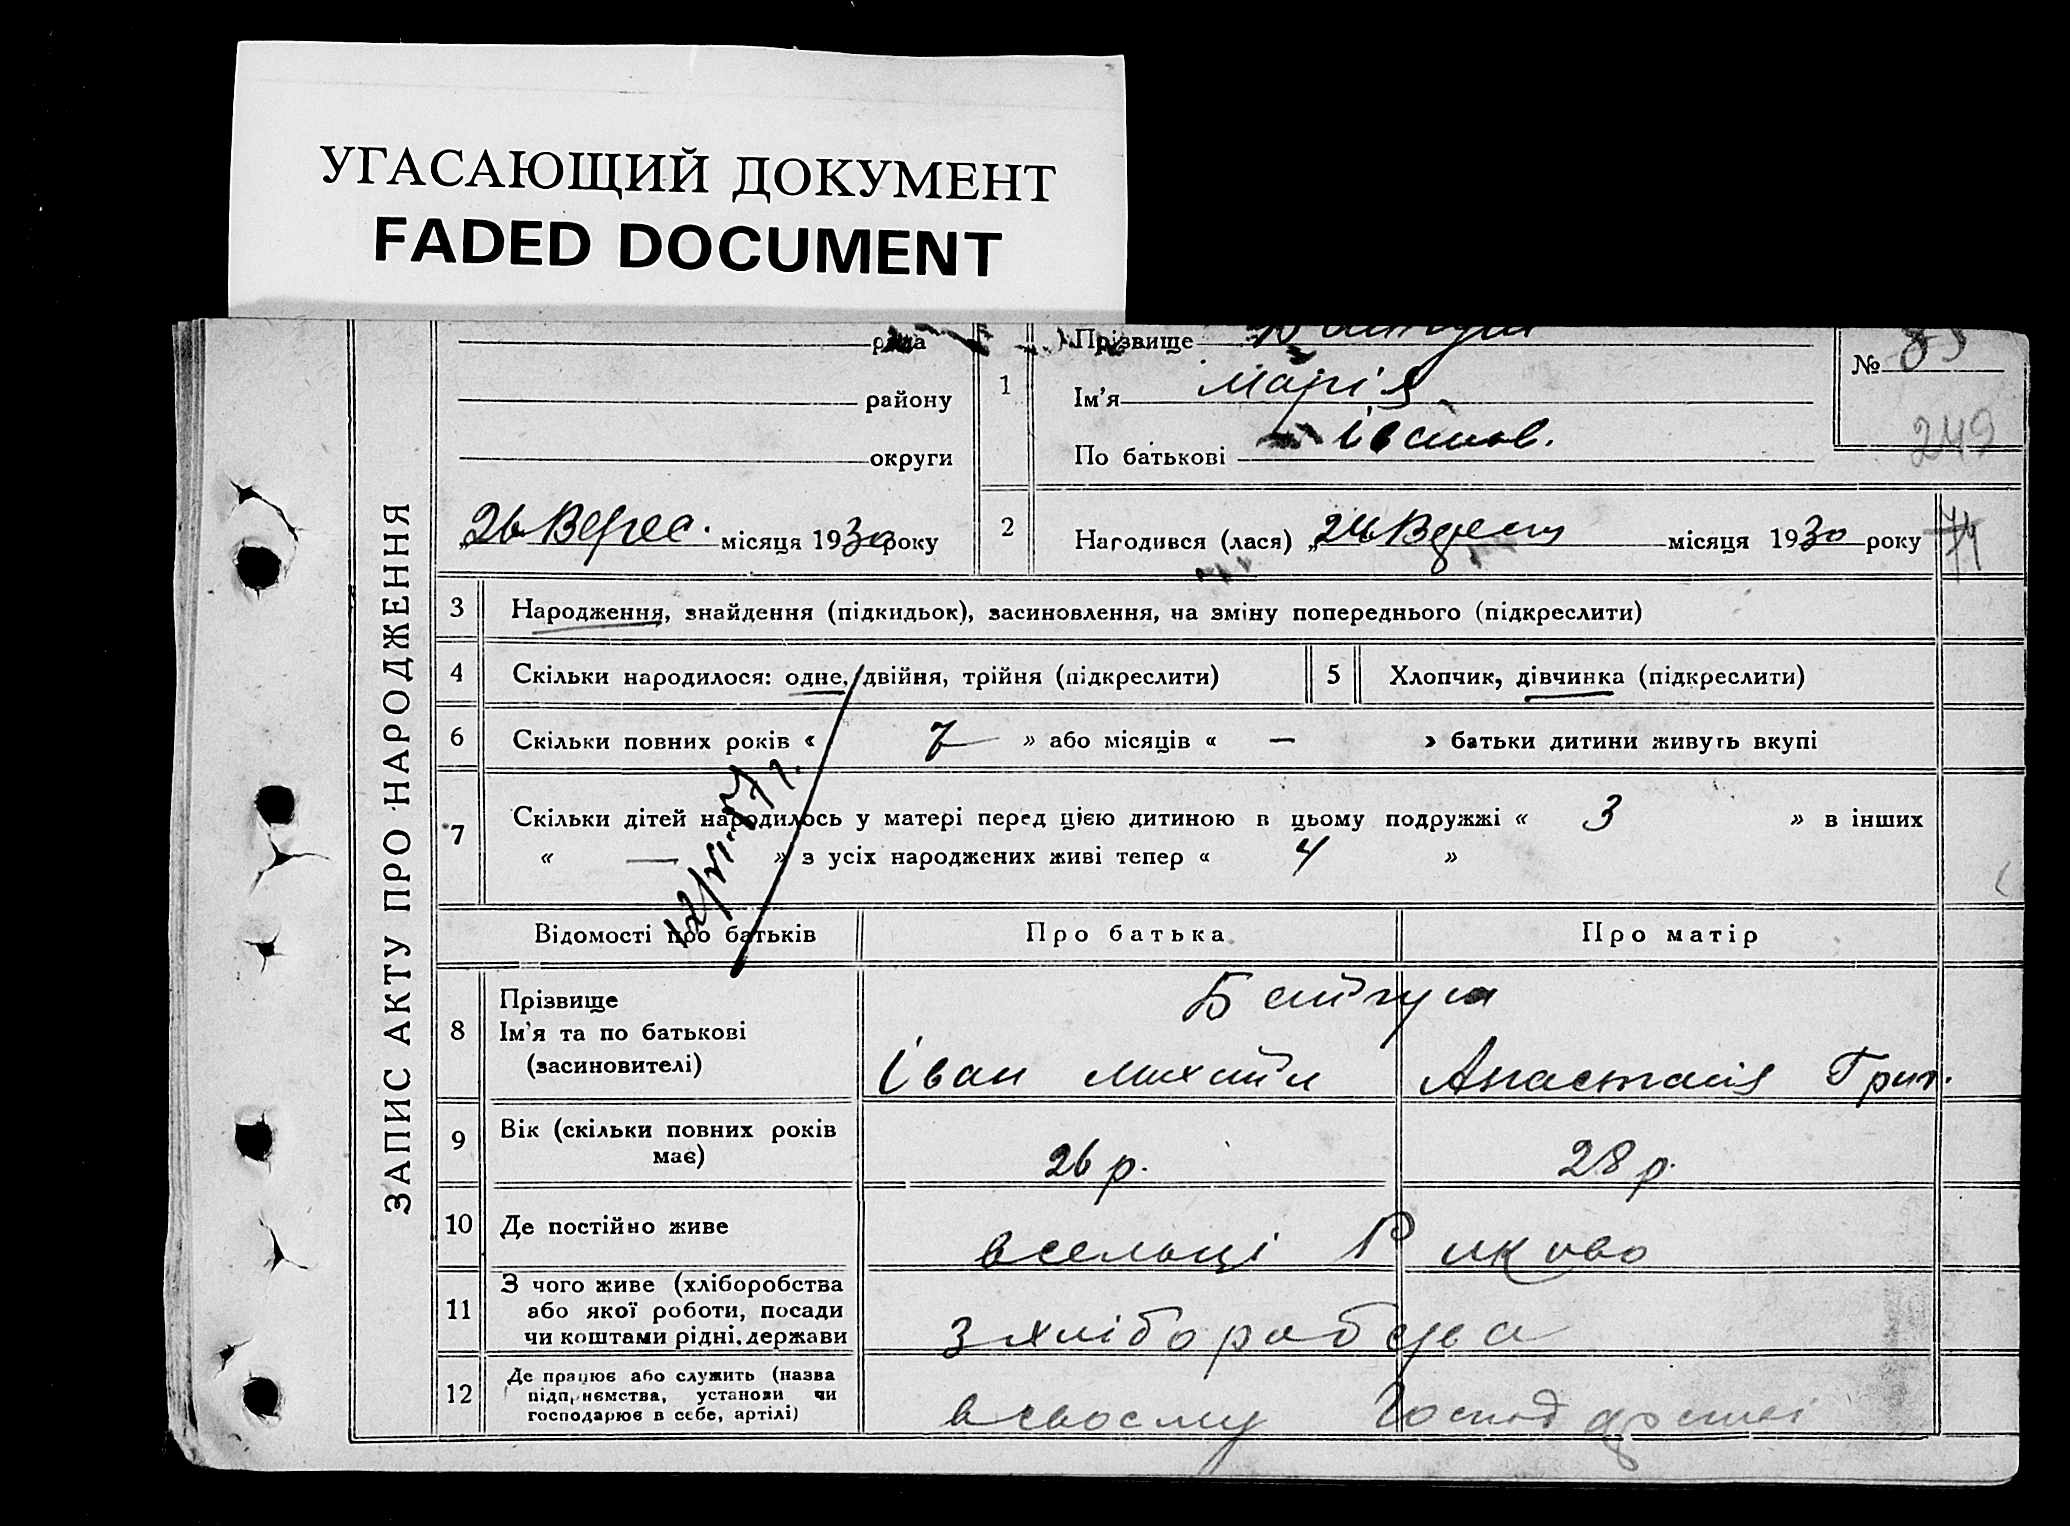 УГАСАЮЩИЙ ДОКУМЕНТ
FADED DOCUMENT
ЗАПИС АКТУ ПРО НАРОДЖЕННЯ
рада
району
округи
„26 Верес. місяця 1930 року
1
Прізвище
Ім'я Марія
По батькові Іванов.
№ 85
249
2 Народився (лася) „24 місяця 1930 року
3 Народження, знайдення (підкидьок), засиновлення, на зміну попереднього (підкреслити)
4 Скільки народилося: одне, двійня, трійня (підкреслити)
5 Хлопчик, дівчинка (підкреслити)
6 Скільки повних років « 7 » або місяців « — » батьки дитини живуть вкупі
7 Скільки дітей народилось у матері перед цією дитиною в цьому подружжі « 3 » в інших
« — » з усіх народжених живі тепер « 4 »
Відомості про батьків Про батька Про матір
8 Прізвище
Ім'я та по батькові
(засиновителі)
Іван Михайл Анастасія Григ.
9 Вік (скільки повних років
має)
26 р. 28 р.
10 Де постійно живе
в сельці Риково
11 З чого живе (хліборобства
або якої роботи, посади
чи коштами рідні, держави
з хліборобства
12 Де працює або служить (назва
підприємства, установи чи
господарює в себе, артілі)
в своєму господарстві